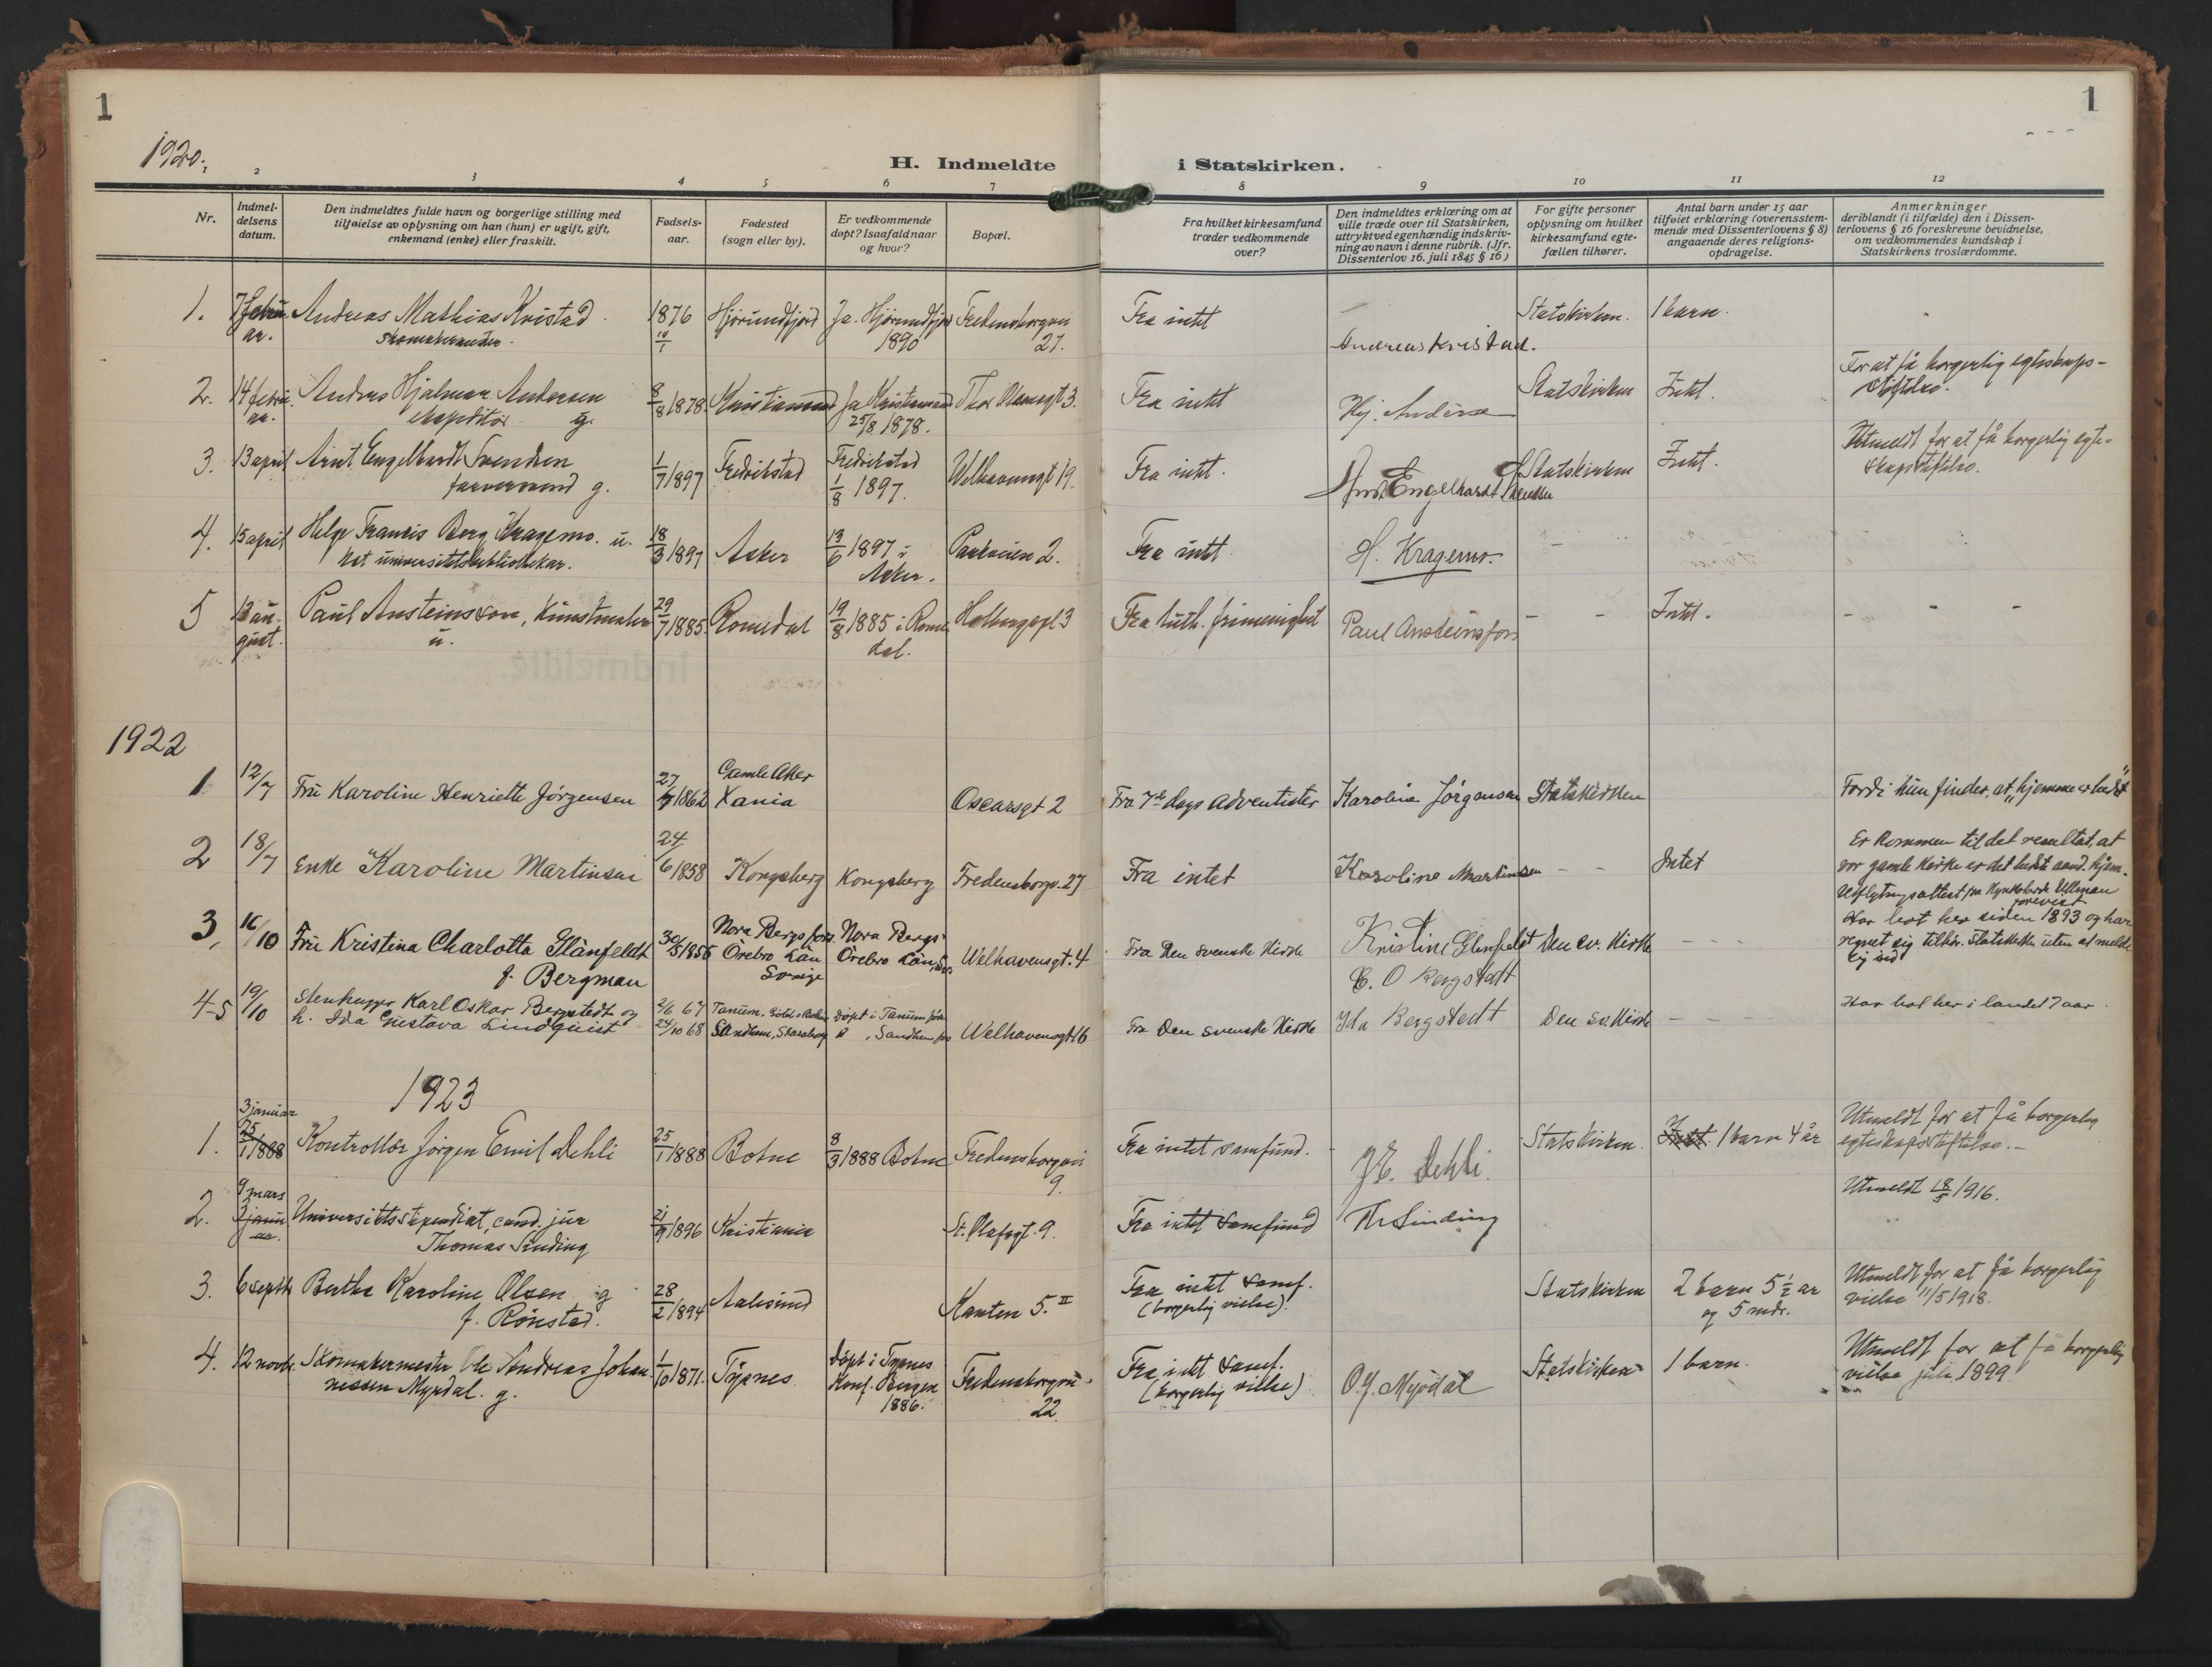 1
1
1920.
H. Indmeldte i Statskirken.
2 3 4 5 6 7 8 9 10 11 12
Nr.
Indmel-
delsens
datum.
Den indmeldtes fulde navn og borgerlige stilling med
tilføielse av oplysning om han (hun) er ugift, gift,
enkemand (enke) eller fraskilt.
Fødsels-
aar.
Fødested
(sogn eller by).
Er vedkommende
døpt? Isaafald naar
og hvor?
Bopæl.
Fra hvilket kirkesamfund
træder vedkommende
over?
Den indmeldtes erklæring om at
ville træde over til Statskirken,
uttrykt ved egenhændig indskriv-
ning av navn i denne rubrik. (Jfr.
Dissenterlov 16. juli 1845 § 16)
For gifte personer
oplysning om hvilket
kirkesamfund egte-
fællen tilhører.
Antal barn under 15 aar
tilføiet erklæring (overensstem-
mende med Dissenterlovens § 8)
angaaende deres religions-
opdragelse.
Anmerkninger
deriblandt (i tilfælde) den i Dissen-
terlovens § 16 foreskrevne bevidnelse,
om vedkommendes kundskap i
Statskirkens troslærdomme.
1. 7 febru- Andreas Mathias Kvistad 1876 Hjørundfjord Ja. Hjørundfjord Fredensborgvei Fra intet Statskirken. 1 barn.
ar. Skomakermester. 10/1 1890 27. Andreas Kvistad.
2. 14 febru- Andreas Hjalmar Andersen 8/8 1878. Kristiansand Ja Kristiansand Thor Olsensgt 3. Fra intet Hj. Andersen Statskirken Intet. For at få borgerlig egteskaps-
ar. ekspeditør g. 25/8 1878. stiftelse.
3. 13 april Arnt Engelhardt Svendsen 1/7 1897 Fredrikstad Fredrikstad Welhavensgt 19. Fra intet. Arnt Engelhardt Svendsen Statskirken Intet. Utmeldt for at få borgerlig egte-
farversvend g. 1/8 1897. skapsstiftelse.
4. 15 april Helge Francis Berg Kragemo. u. 18/3 1897 Asker 13/6 1897 i Parkveien 2. Fra intet H. Kragemo. -
universitetsbibliothekar. Asker.
5 13 au- Paul Ansteinsson, Kunstmaler 29/7 1885. Romedal 19/8 1885 i Rome- Holbergspl 3 Fra luth. frimenighet Paul Ansteinsson - - Intet. - - -
gust. u. dal.
1922
1 12/7 Fru Karoline Henriette Jørgensen 27/7 1862 Gamle Aker
Xania Oscarsgt 2 Fra 7de dags adventister Karoline Jørgensen Statskirken Fordi hun finder, at "hjemme er bedst"
2 18/7 Enke Karoline Martinsen 24/6 1858 Kongsberg Kongsberg Fredensborgv. 27 Fra intet Karoline Martinsen - - Intet Er kommen til det resultat, at
vor gamle kirke er det bedste aand. hjem.
Utflytningsattest fra Kyrkoherde Ullman
forevist
3, 16/10 Fru Kristina Charlotta Glänfeldt 30/5 1856 Nora Bergsförs. Nora Bergs- Welhavensgt. 4 Fra Den svenske Kirke Kristine Glenfeldt Den sv. Kirke - - - Har bot her siden 1893 og har
f. Bergman Örebro Län Örebro Län, Sv. regnet sig tilhør. Statskirken uten at melde
Sverige sig ind
4-5 19/10 Stenhugger Karl Oskar Bergstedt og 2/6 67 Tanum, døpt i Tanum C. O Bergstedt
h. Ida Gustava Lindquist 24/10 68 Sandhem, Skaraborg Sandhem Welhavensgt 16 Fra Den svenske Kirke Ida Bergstedt Den sv. Kirke - - - Har bot her i landet 7 aar.
1923
3 januar
1. 25/1 1888 Kontrollør Jørgen Emil Dehli 25/1 1888 Botne 8/3 1888 Botne Fredensborgvei Fra intet samfund. J E. Dehli. Statskirken. Intet. 1 barn 4 år Utmeldt for at få borgerlig
9. egteskapsstiftelse. -
9 mars
2. 3 janu- Universitetsstipendiat, cand. jur 21/9 1896 Kristiania St. Olafsgt. 9. Fra intet samfund Th Sinding Utmeldt 18/5 1916.
ar. Thomas Sinding
3. 6 septbr Berthe Karoline Olsen g 28/2 1894 Aalesund Kanten 5. II Fra intet samf. Statskirken 2 barn 5 ½ ar Utmeldt for at få borgerlig
f. Rønstad. (borgerlig vielse). og 5 mdr. vielse 11/5 1918.
4. 12 novbr. Skomakermester Ole Andreas Johan- 1/10 1871. Tysnes døpt i Tysnes Fredensborgvei Fra intet samf. O. J. Myrdal Statskirken 1 barn. Utmeldt for at få borgerlig
nessen Myrdal. g. Konf. Bergen 22. (borgerlig vielse) vielse juli 1899.
1886.